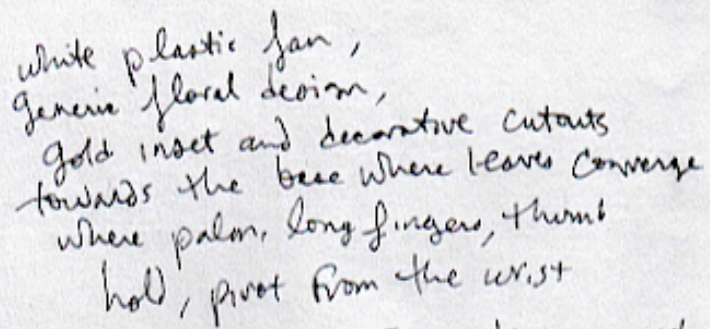 white plastic fan,
generic floral design,
gold inset and decorative cutouts
towards the base where leaves converge
where palm, long fingers, thumb
hold, pivot from the wrist